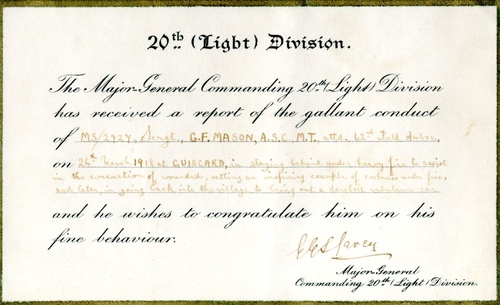 20th (Light) Division.
The Major-General Commanding 20th (Light) Division
has received a report of the gallant conduct
of MS/2927, Sergt, G.F. MASON, A.S.C. M.T. attd. 62nd Field Ambce.
on 24th March 1918 at GUISCARD, in staying behind under heavy fire to assist
in the evacuation of wounded, setting an inspiring example of coolness under fire,
and later, in going back into the village to bring out a derelict ambulance car
and he wishes to congratulate him on his
fine behaviour.
Major-General
Commanding 20th (Light) Division.